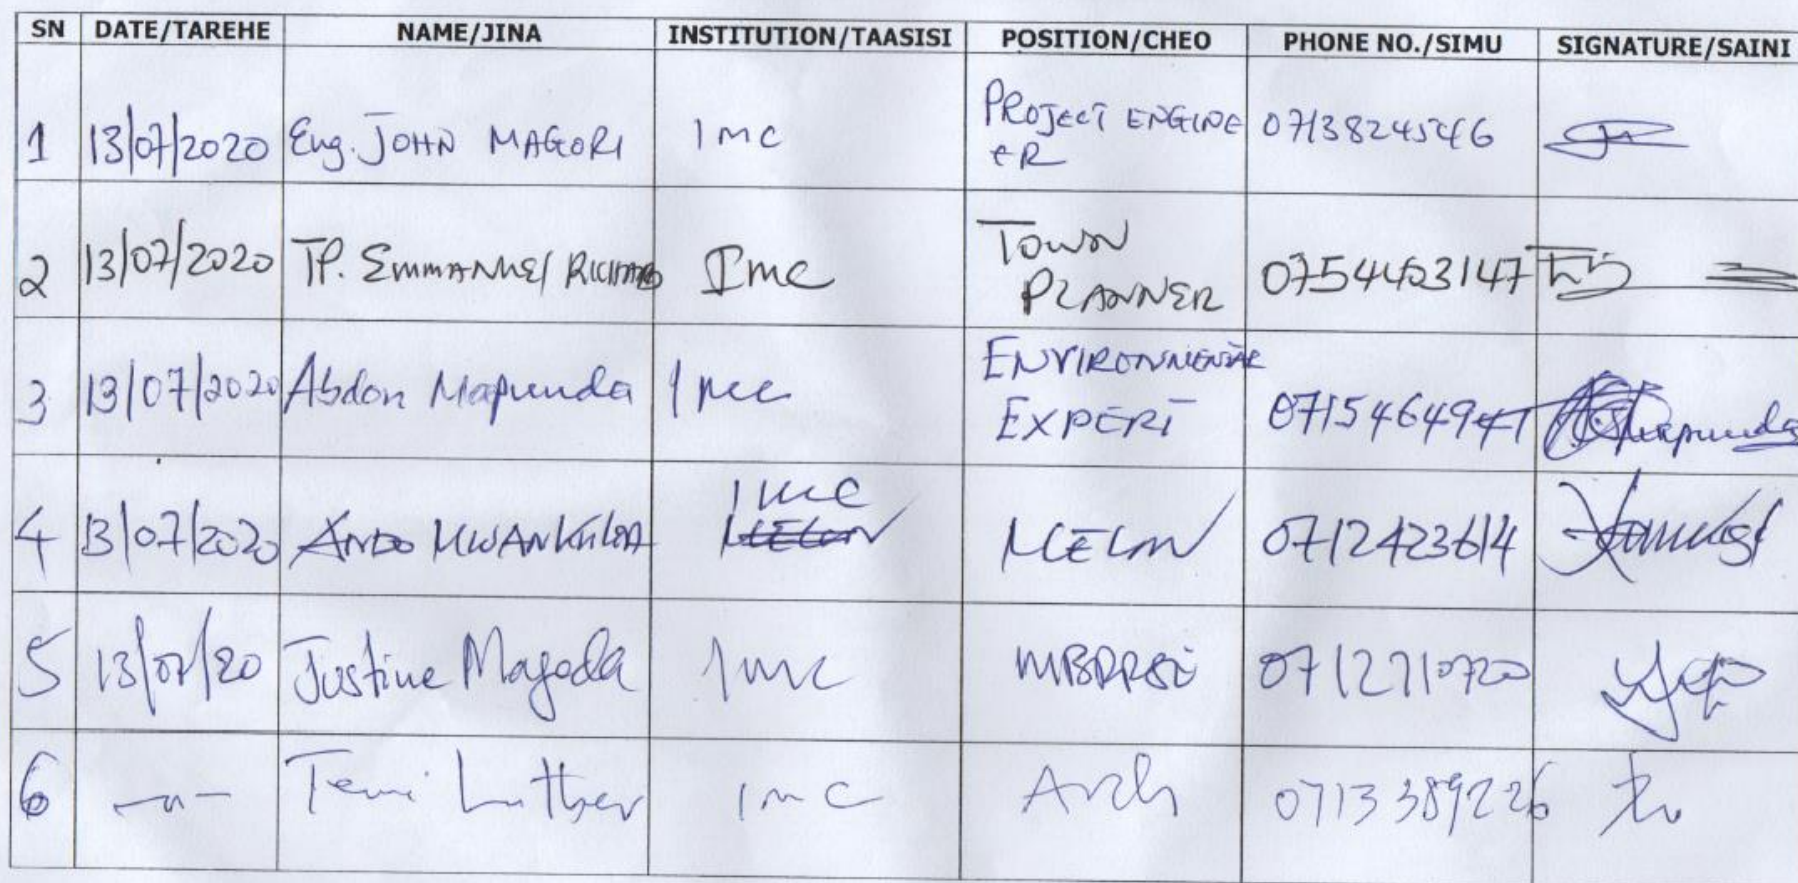 SN DATE/TAREHE NAME/JINA INSTITUTION/TAASISI POSITION/CHEO PHONE NO./SIMU SIGNATURE/SAINI
1 13/07/2020 Eng. JOHN MAGORI IMC PROJECT ENGINE 0713824546
ER
2 13/07/2020 TP. EMMANUEL RICHARD IMC TOWN
PLANNER 0754423147
3 13/07/2020 Abdon Mapunda IMC ENVIRONMENTAL
EXPERT 0715464941 Mapunda
IMC
4 13/07/2020 MWANKINA 0712423614
5 13/07/20 Justine IMC 0712710720
6 -〃- Luther IMC Arch 0713389226